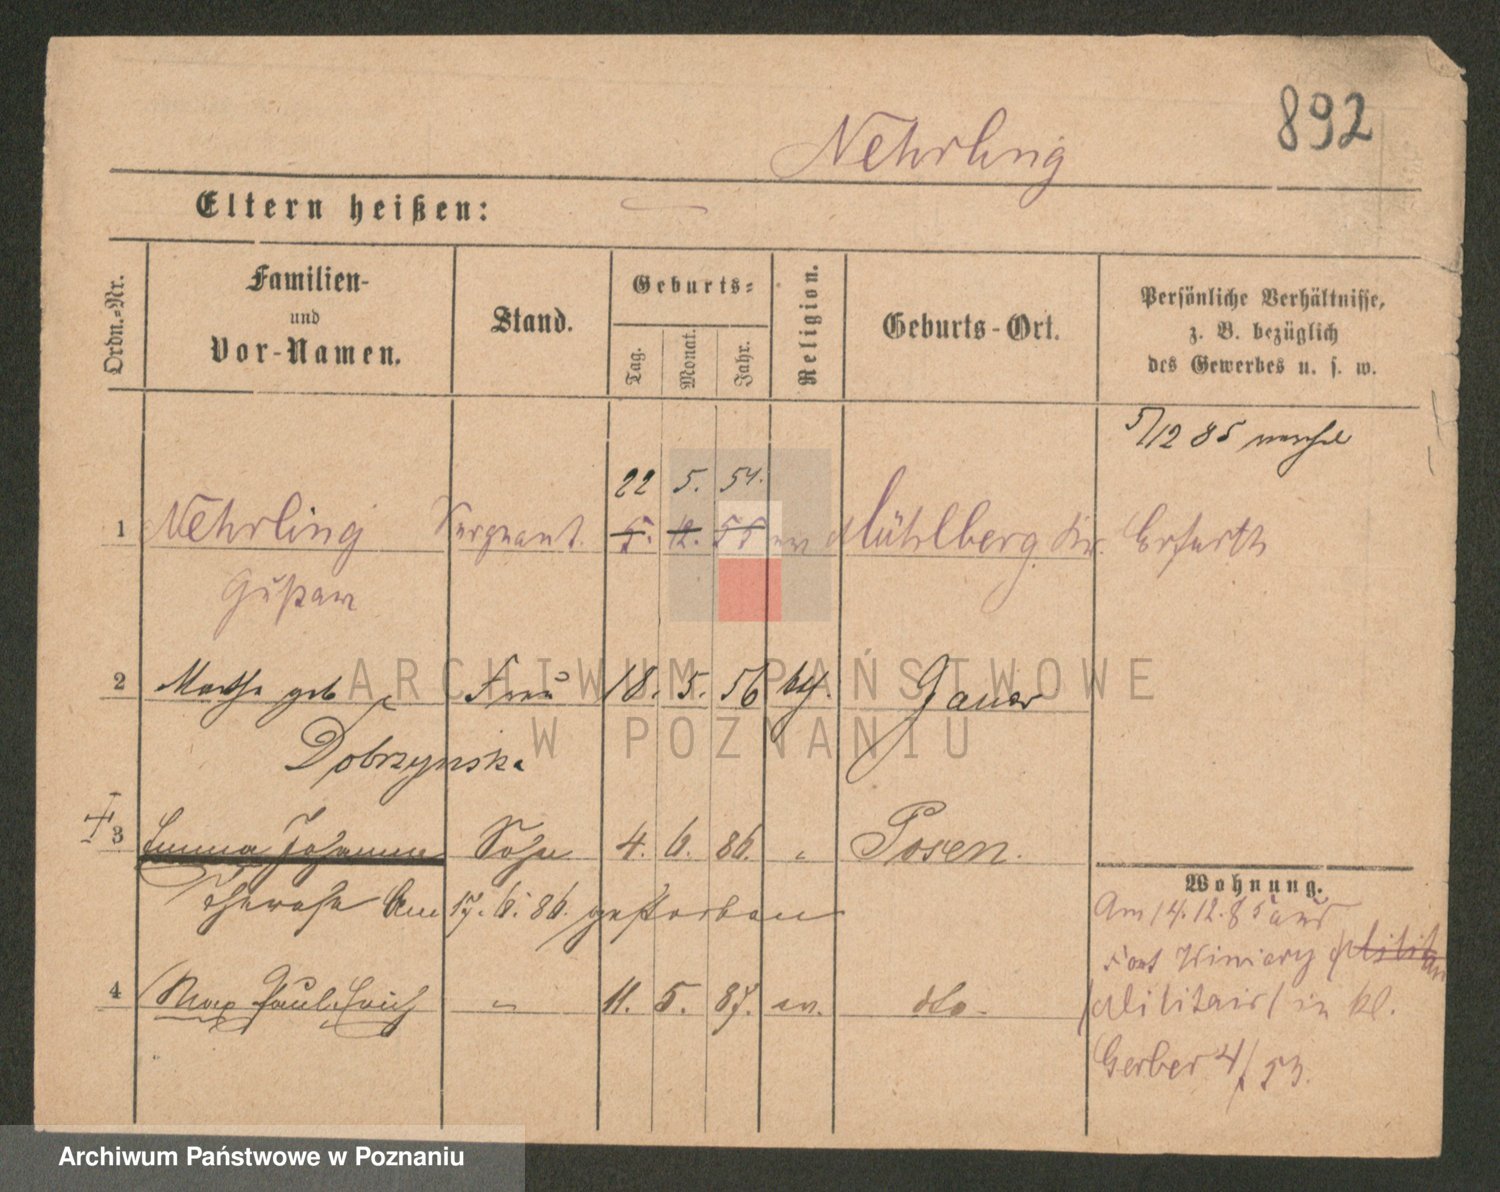 892
Nehrling
Eltern heißen: —
Ordn.-Nr.
Familien-
und
Vor-Namen.
Stand.
Geburts-
Tag. Monat. Jahr.
Religion.
Geburts-Ort.
Persönliche Verhältnisse,
z. B. bezüglich
des Gewerbes u. s. w.
5/12 85
22 5. 54.
1 Nehrling Sergeant. 5. 12. 55 ev Mühlberg. Kr. Erfurth
Gustav
2 Martha geb Frau 18. 5. 56 kth. Gauer
Dobrzynska
3 Emma Johanna Sohn 4. 6. 86. " Posen.
Therese Am 17. 6. 86. gestorben
4 Max Paul Erich " 11. 5. 87. ev. dto.
Wohnung.
Am 14.12.85 aus
Fort Winiary
(Militair) in kl.
Gerber 4/53.
ARCHIWUM PAŃSTWOWE
W POZNANIU
Archiwum Państwowe w Poznaniu